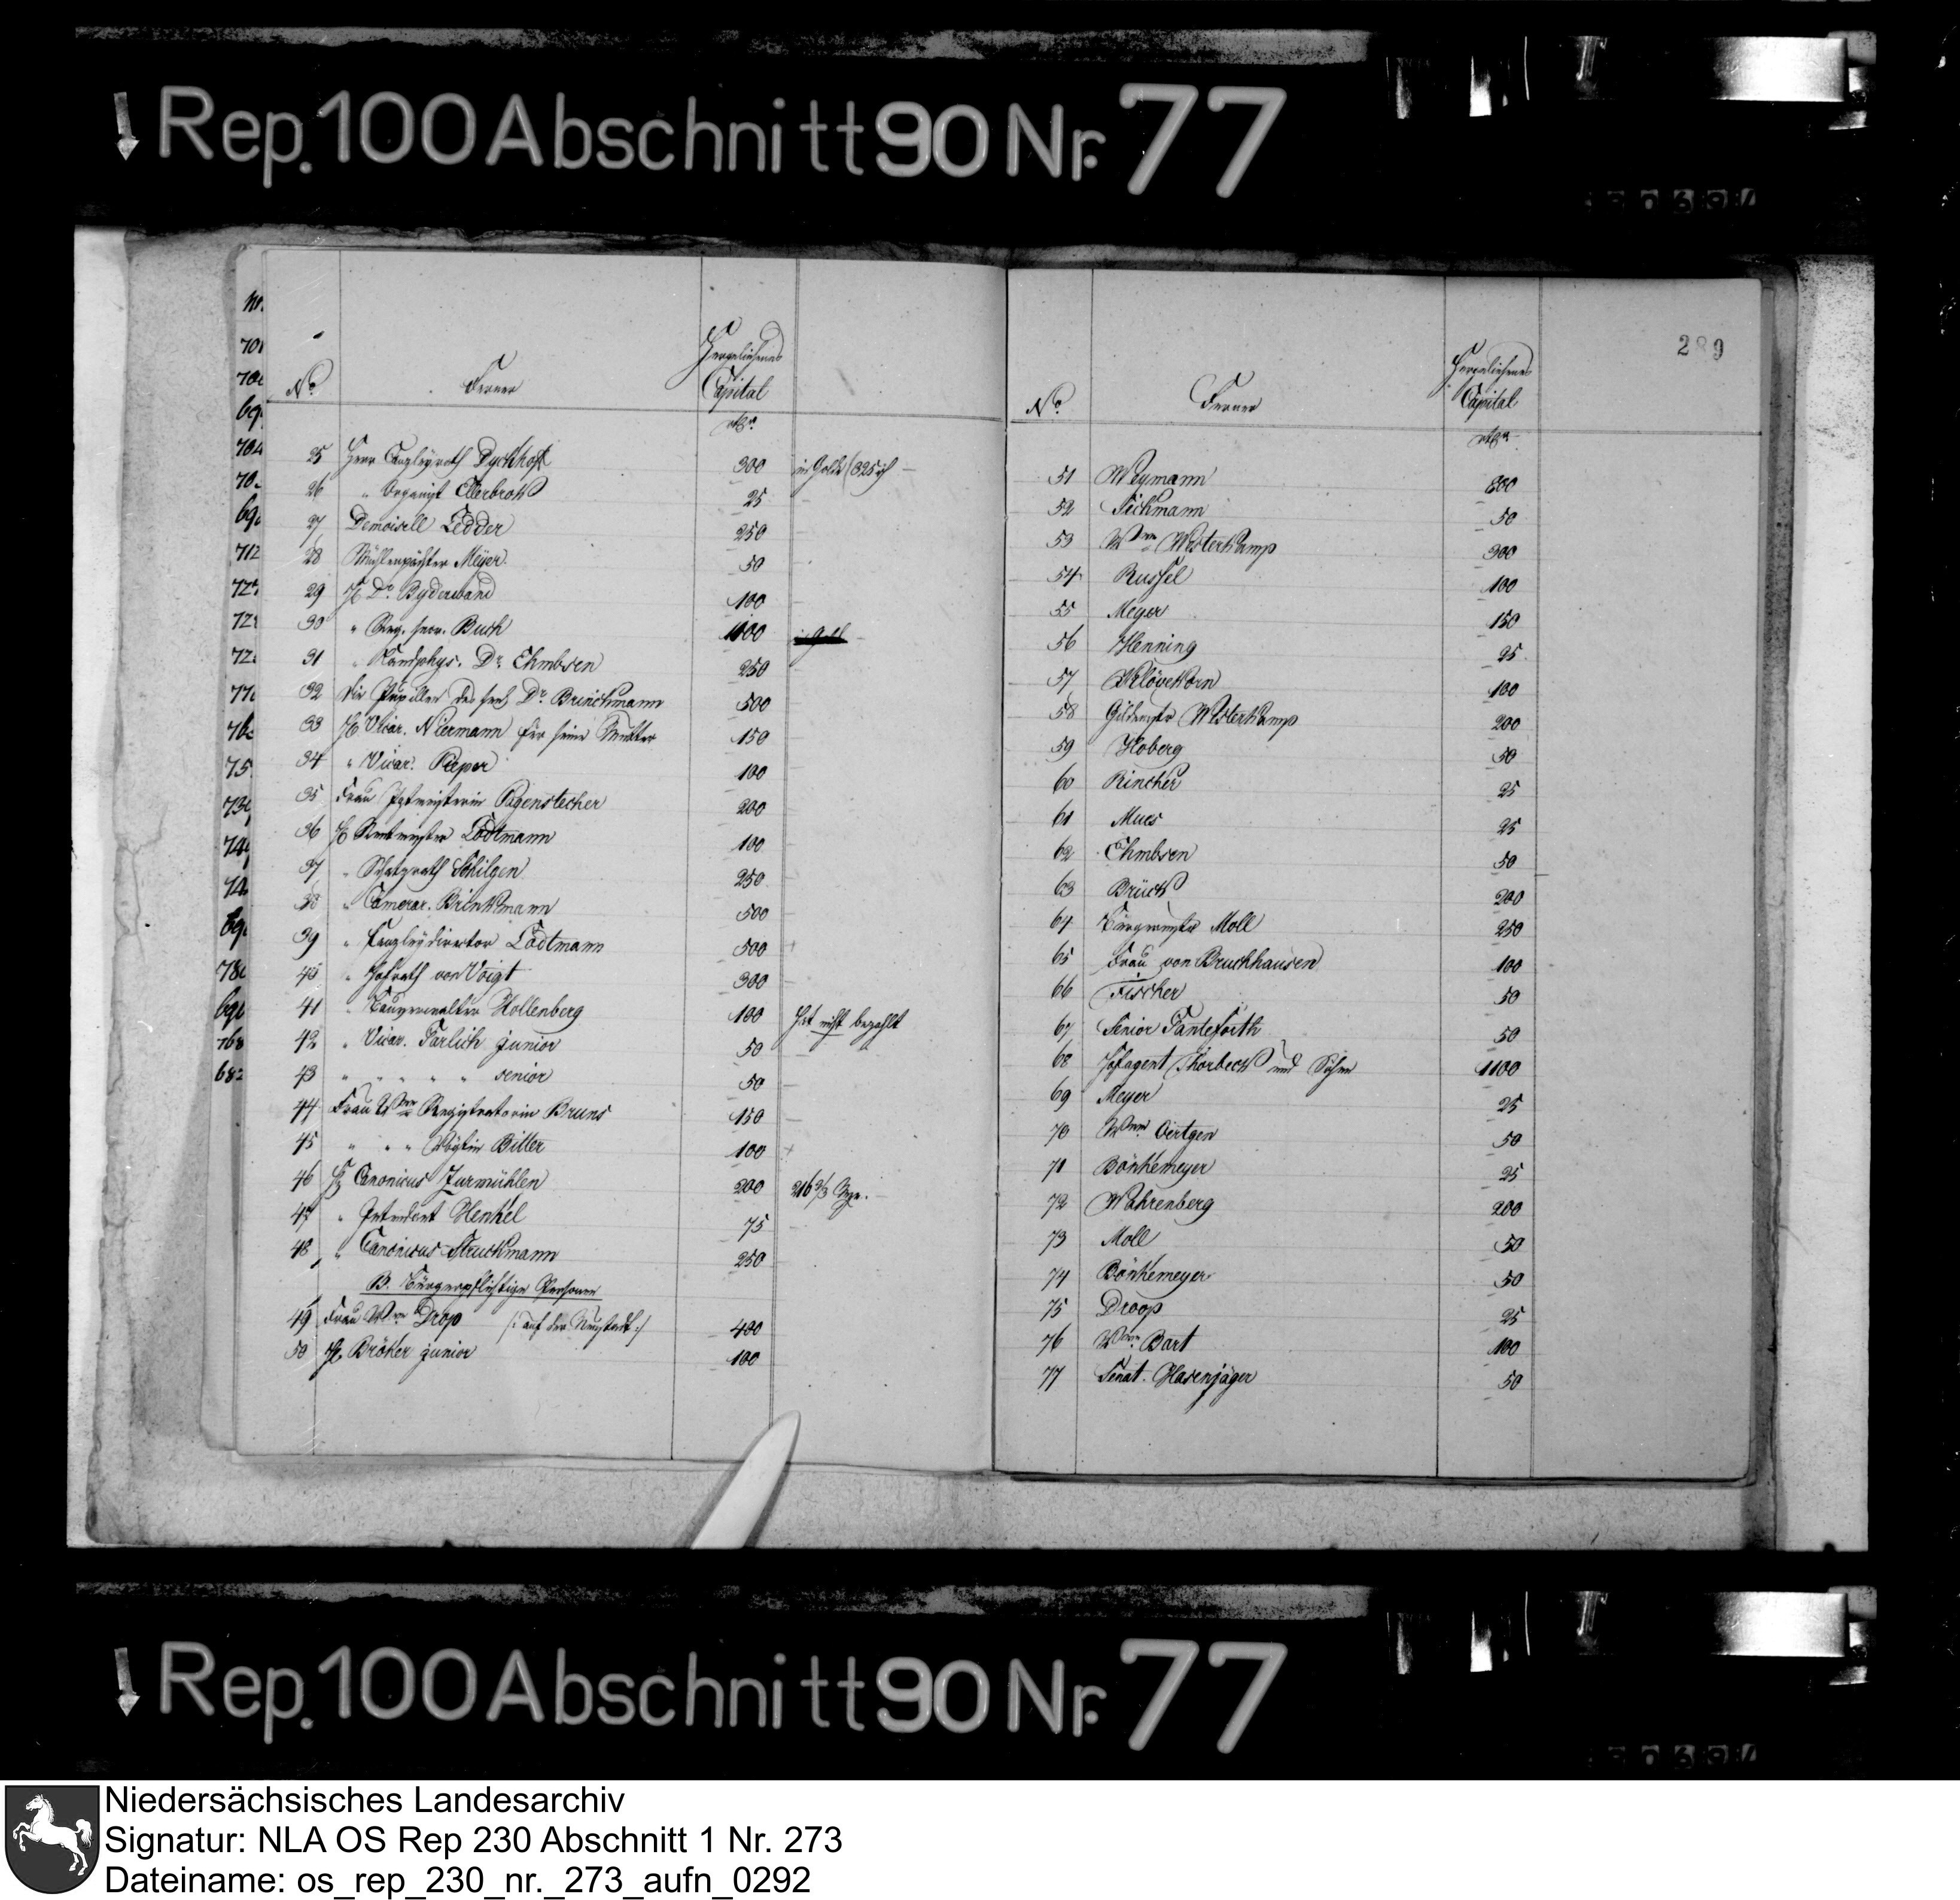 Rep. 100 Abschnitt 90 Nr. 77
No. Ferner Hergeliehenes Capital
rthlr.
25 Herr Canzleyrath Dyckhoff 300 in Golde (325 rthl
26 " Organist Ellerbrock 25
27 Demoiselle Ledder 250
28 Mühlenpächter Meyer 50
29 H Dr. Byderwand 100
30 " Buch 1100 in Gold
31 " Landphys. Dr. Ehmbsen 250
32 Die Pupillen des sel. Dr. Brinckmann 500
33 H Vicar. Niermann für seine Mutter 150
34 " Vicar. Pieper 100
35 Frau Pagenstecher 200
36 H Rentmeister Lodtmann 100
37 " Schatzrath Schilgen 250
38 " Camerar. Brinkmann 500
39 " Canzleydirector Lodtmann 500
40 " Hofrath von Voigt 300
41 " Bauverwalter Hollenberg 100 Hat nicht bezahlt
42 " Vicar. Farlich junior 50
43 " " " " " senior 50
44 Frau Wwe Registratorin Bruns 150
45 " " " Vögtin Bitter 100
46 H Canonicus Zurmühlen 200 216 2/3
47 " Intendant Henkel 75
48 " Canonicus Struckmann 250
B. Bürgerpflichtige Personen
49 Frau Wwe Drop /: auf der Neustadt :/ 400
50 H Bröker junior 100
289
No. Ferner Hergeliehenes Capital
rthlr.
51 Weymann 800
52 Sickmann 50
53 Wwe Westerkamp 300
54 Russel 100
55 Meyer 150
56 Henning 25
57 Klövekorn 100
58 Gildemstr Westerkamp 200
59 Hoberg 50
60 Rincher 25
61 Mues 25
62 Ehmbsen 50
63 Brück 200
64 Bürgermstr Moll 250
65 Frau von Bruchhausen 100
66 Fischer 50
67 Senior Fantefoith 50
68 Hofagent Thorbeck und Sohn 1100
69 Meyer 25
70 Wwe Oertgen 50
71 Bönkemeyer 25
72 Wahrenberg 200
73 Moll 50
74 Bönkemeyer 50
75 Droop 25
76 Wwe Bart 100
77 Senat. Hasenjäger 50
Rep. 100 Abschnitt 90 Nr. 77
Niedersächsisches Landesarchiv
Signatur: NLA OS Rep 230 Abschnitt 1 Nr. 273
Dateiname: os_rep_230_nr._273_aufn_0292